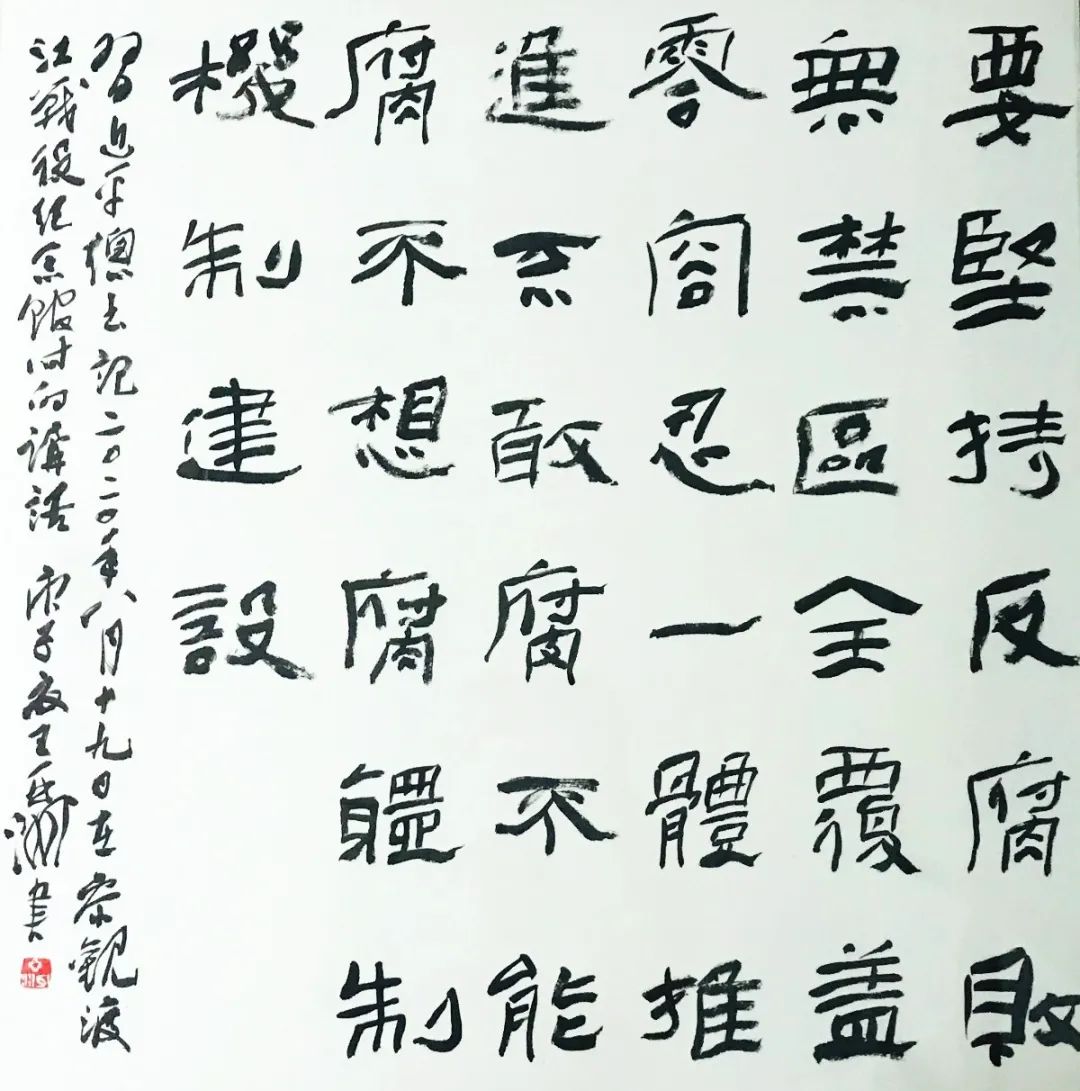 要堅持反腐敗
無禁區全覆盖
零容忍一體推
進不敢腐不能
腐不想腐軆制
機制建設
習近平總书記二〇二〇年八月十九日在參觀渡
江戰役纪念館时的講話 庚子 王 書